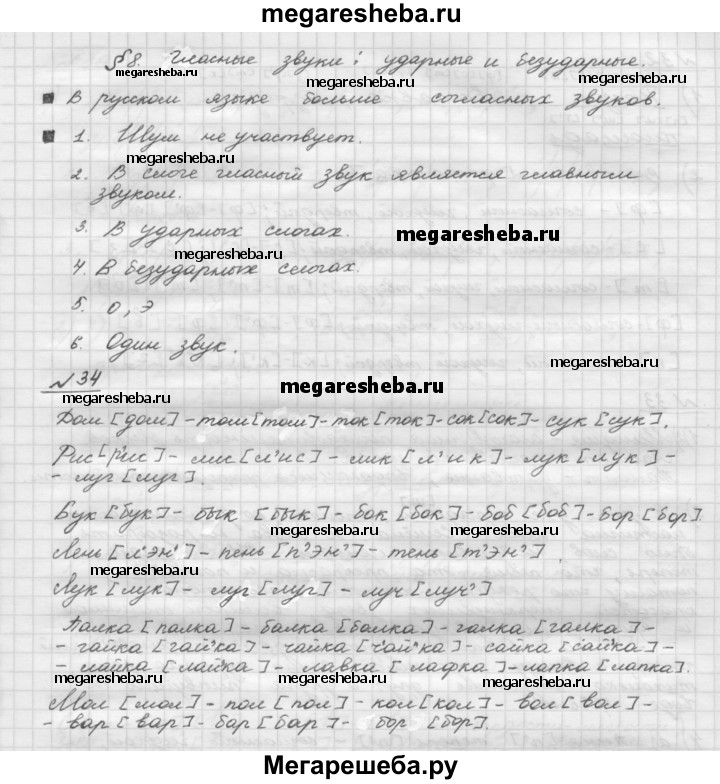 megaresheba.ru
§ 8. Гласные звуки: ударные и безударные.
megaresheba.ru megaresheba.ru
В русском языке больше согласных звуков.
megaresheba.ru
1. Шум не участвует.
megaresheba.ru
2. В слоге гласный звук является главным
звуком.
3. В ударных слогах.
megaresheba.ru
megaresheba.ru
4. В безударных слогах.
5. О, э
6. Один звук.
megaresheba.ru
№ 34
megaresheba.ru
megaresheba.ru
Дом [дом] - том [том] - ток [ток] - сок [сок] - сук [сук].
Рис [р'ис] - лис [л'ис] - лик [л'ик] - лук [лук] -
- луг [луг].
Бук [бук] - бык [бык] - бок [бок] - боб [боб] - бор [бор].
megaresheba.ru megaresheba.ru
Лень [л'эн'] - пень [п'эн'] - тень [т'эн'].
megaresheba.ru
Лук [лук] - луг [луг] - луч [луч']
Палка [палка] - балка [балка] - галка [галка] -
- гайка [гай'ка] - чайка [ч'ай'ка] - сайка [сай'ка] -
- лайка [лай'ка] - лавка [лафка] - лапка [лапка].
megaresheba.ru megaresheba.ru megaresheba.ru
Мол [мол] - пол [пол] - кол [кол] - вол [вол] -
- вар [вар] - бар [бар] - бор [бор].
Мегарешеба.ру